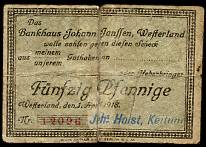 Das
Bankhaus Johann Janssen, Westerland
wolle zahlen gegen diesen Scheck
aus meinem Guthaben
unserem
den Ueberbringer
Fünfzig Pfennige
Westerland, den 1. April 1918.
Nr. 12096 Joh: Holst, Keitum